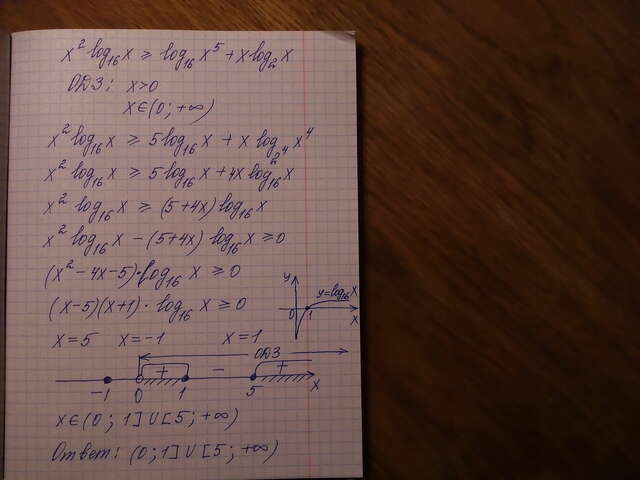 x² log₁₆x ≥ log₁₆x⁵ + x log₂x
ОДЗ: x>0
x∈(0; +∞)
x² log₁₆x ≥ 5 log₁₆x + x log₂₄x⁴
x² log₁₆x ≥ 5 log₁₆x + 4x log₁₆x
x² log₁₆x ≥ (5+4x) log₁₆x
x² log₁₆x − (5+4x) log₁₆x ≥ 0
(x² − 4x − 5)·log₁₆x ≥ 0
(x−5)(x+1)·log₁₆x ≥ 0
y
y=log₁₆x
0 1 x
x=5 x=−1 x=1
ОДЗ
+ − +
−1 0 1 5 x
x∈(0; 1]∪[5; +∞)
Ответ: (0; 1]∪[5; +∞)